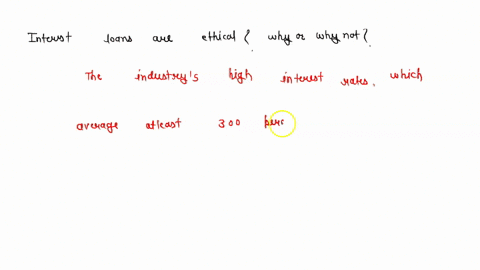 Interst loans are ethical { why or why not {
The industry's high interest rates, which
average atleast 300 perc